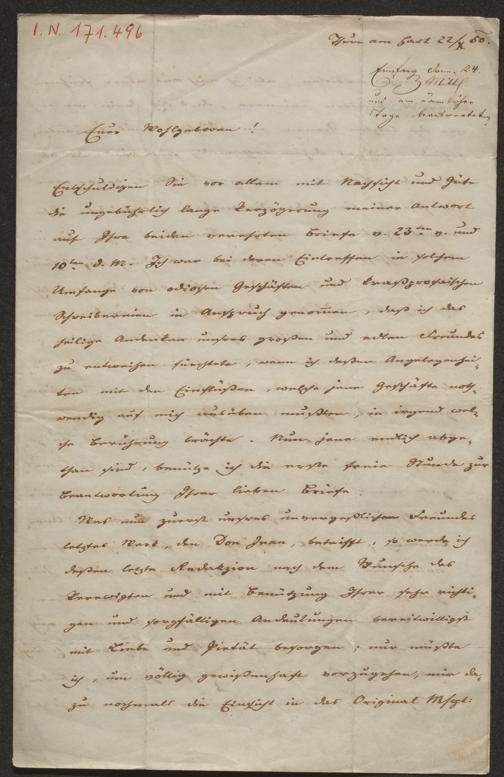 I. N. 171.496
Thurn am Hart 22/X 50.
Empfang Sonn. 24.
und am nämlichen
Tage beantwortet
Euer Wohlgeboren!
Entschuldigen Sie vor allem mit Nachsicht und Güte
die ungebührlich lange Verzögerung meiner Antwort
auf Ihre beiden verehrten Briefe v. 23ten v. und
10ten d. M. Ich war bei deren Eintreffen in solchem
Umfange von odiosen Geschäften und kraßprosaischen
Schreibereien in Anspruch genommen, daß ich das
heilige Andenken unsres großen und edlen Freundes
zu entweihen fürchtete, wenn ich dessen Angelegenhei-
ten mit den Einflüßen, welche jene Geschäfte noth-
wendig auf mich ausüben mußten, in irgend wel-
che Berührung brächte. Nun jene endlich abge-
than sind, benütze ich die erste freie Stunde zur
Beantwortung Ihrer lieben Briefe.
Was nun zuerst unsres unvergeßlichen Freundes
letztes Werk, den Don Juan, betrifft, so werde ich
dessen letzte Redakzion nach dem Wunsche des
Verewigten und mit Benützung Ihrer sehr richti-
gen und sorgfältigen Andeutungen bereitwilligst
mit Liebe und Pietät besorgen; nur müßte
ich, um völlig gewißenhaft vorzugehen, mir da-
zu nochmals die Einsicht in das Original Mspt: